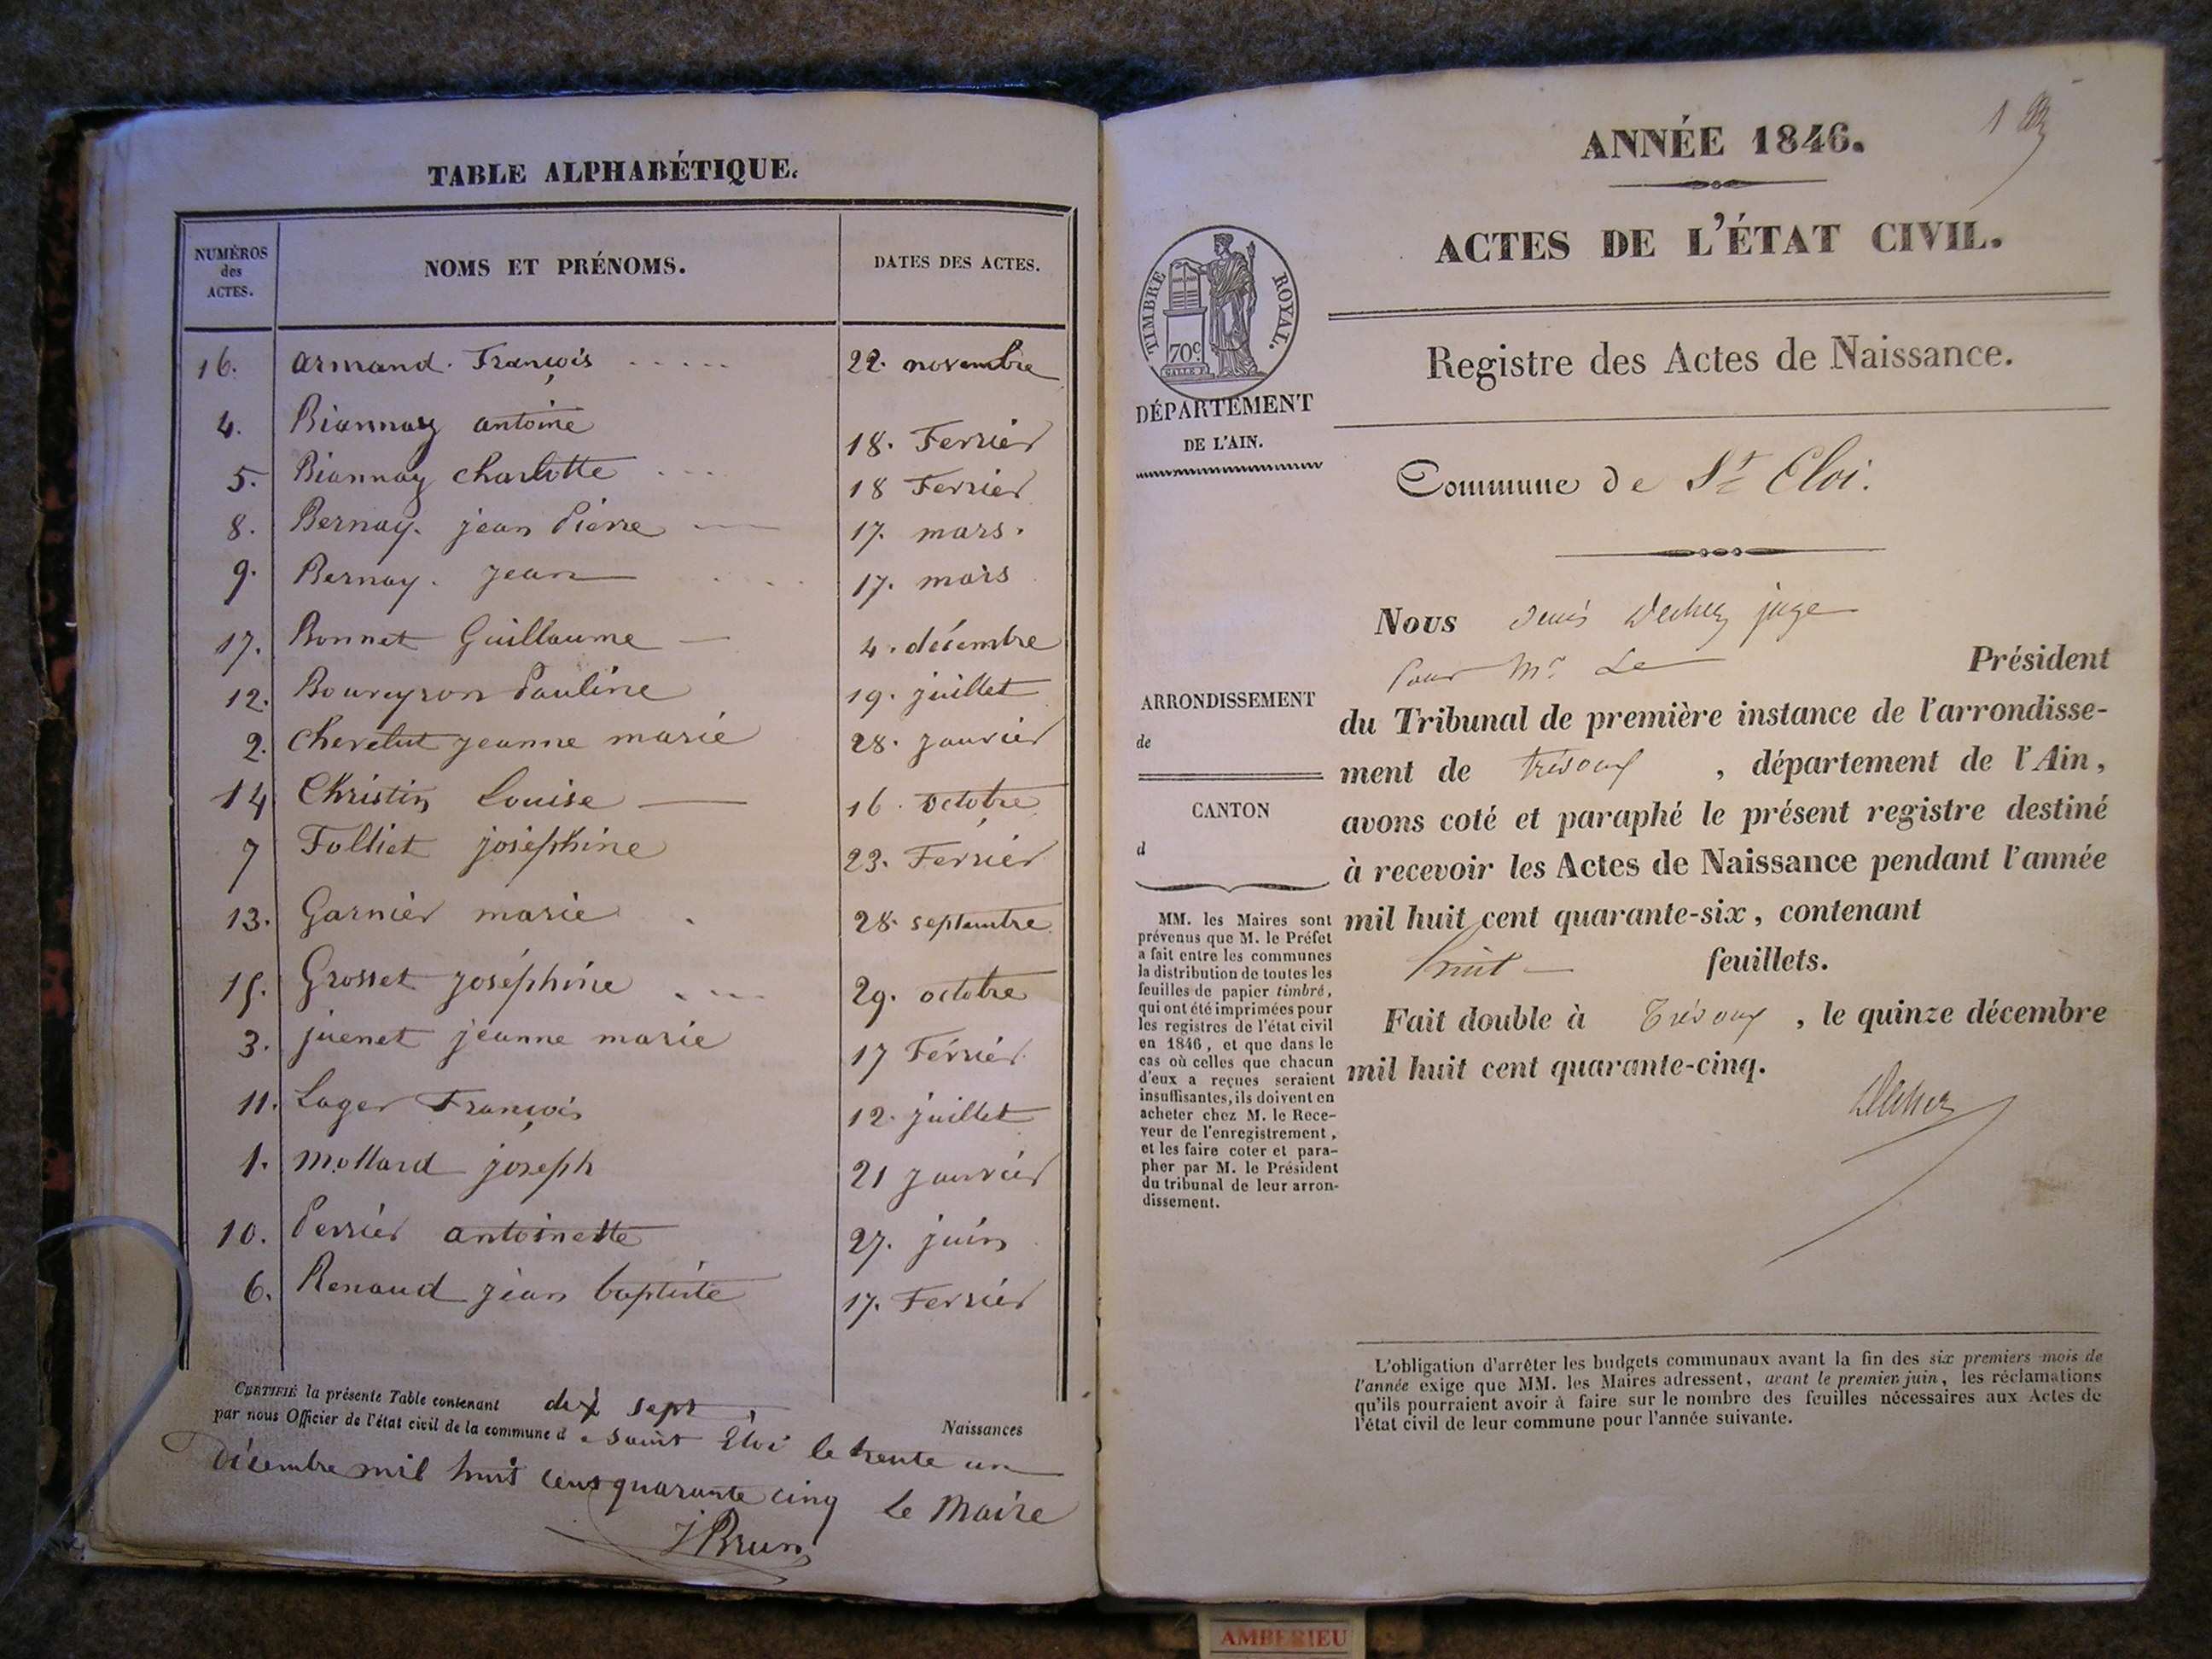 TABLE ALPHABÉTIQUE.
NUMÉROS des ACTES. NOMS ET PRÉNOMS. DATES DES ACTES.
16. armand. François 22. novembre
4. Biannay antoine 18. Fevrier
5. Biannay charlotte 18 Fevrier
8. Bernay. jean Pierre 17. mars.
9. Bernay. jean 17. mars
17. Bonnet Guillaume 4. décembre
12. Bouveyron Pauline 19. juillet
2. chevelut jeanne marie 28. janvier
14 Christin Louise 16. octobre
7 Folliet joséphine 23. Fevrier
13. Garnier marie 28. septembre
15. Grosset joséphine 29. octobre
3. juenet jeanne marie 17 Février
11. Lager François 12. juillet
1. mollard joseph 21 janvier
10. Perrier antoinette 27. juin
6. Renaud jean baptiste 17. Fevrier
CERTIFIÉ la présente Table contenant dix sept Naissances
par nous Officier de l'état civil de la commune d e saint Eloi le trente un
décembre mil huit cent quarante cinq Le Maire
J Brun
1
ANNÉE 1846.
ACTES DE L'ÉTAT CIVIL.
TIMBRE ROYAL.
70c.
Registre des Actes de Naissance.
DÉPARTEMENT
DE L'AIN.
Commune de St Eloi.
Nous juge
Pour Mr. Le Président
ARRONDISSEMENT
de
CANTON
d
du Tribunal de première instance de l'arrondisse-
ment de Trévoux, département de l'Ain,
avons coté et paraphé le présent registre destiné
à recevoir les Actes de Naissance pendant l'année
mil huit cent quarante-six, contenant
huit feuillets.
Fait double à Trévoux, le quinze décembre
mil huit cent quarante-cinq.
MM. les Maires sont
prévenus que M. le Préfet
a fait entre les communes
la distribution de toutes les
feuilles de papier timbré,
qui ont été imprimées pour
les registres de l'état civil
en 1846, et que dans le
cas où celles que chacun
d'eux a reçues seraient
insuffisantes, ils doivent en
acheter chez M. le Rece-
veur de l'enregistrement,
et les faire coter et para-
pher par M. le Président
du tribunal de leur arron-
dissement.
L'obligation d'arrêter les budgets communaux avant la fin des six premiers mois de
l'année exige que MM. les Maires adressent, avant le premier juin, les réclamations
qu'ils pourraient avoir à faire sur le nombre des feuilles nécessaires aux Actes de
l'état civil de leur commune pour l'année suivante.
AMBERIEU